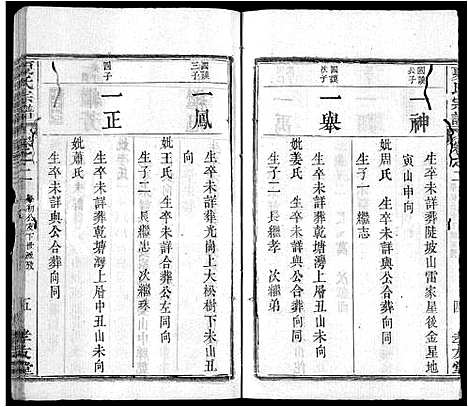 國謨
長子
一神
生卒未詳葬陡坡山雷家屋後金星地
寅山申向
妣周氏 生卒未詳與公合葬向同
生子一 繼志
國謨
次子
一舉
生卒未詳葬乾塘灣上層丑山未向
妣姜氏 生卒未詳與公合葬向同
生子二 長繼孝 次繼弟
國謨
三子
一鳳
生卒未詳葬光崗上大松樹下未山丑
向
妣王氏 生卒未詳合葬公左同向
生子二 長繼志 次繼珠
國謨
四子
一正
生卒未詳葬乾塘灣上層中丑山未向
妣蕭氏 生卒未詳與公合葬向同
氏宗譜
卷之二
五 孝友堂